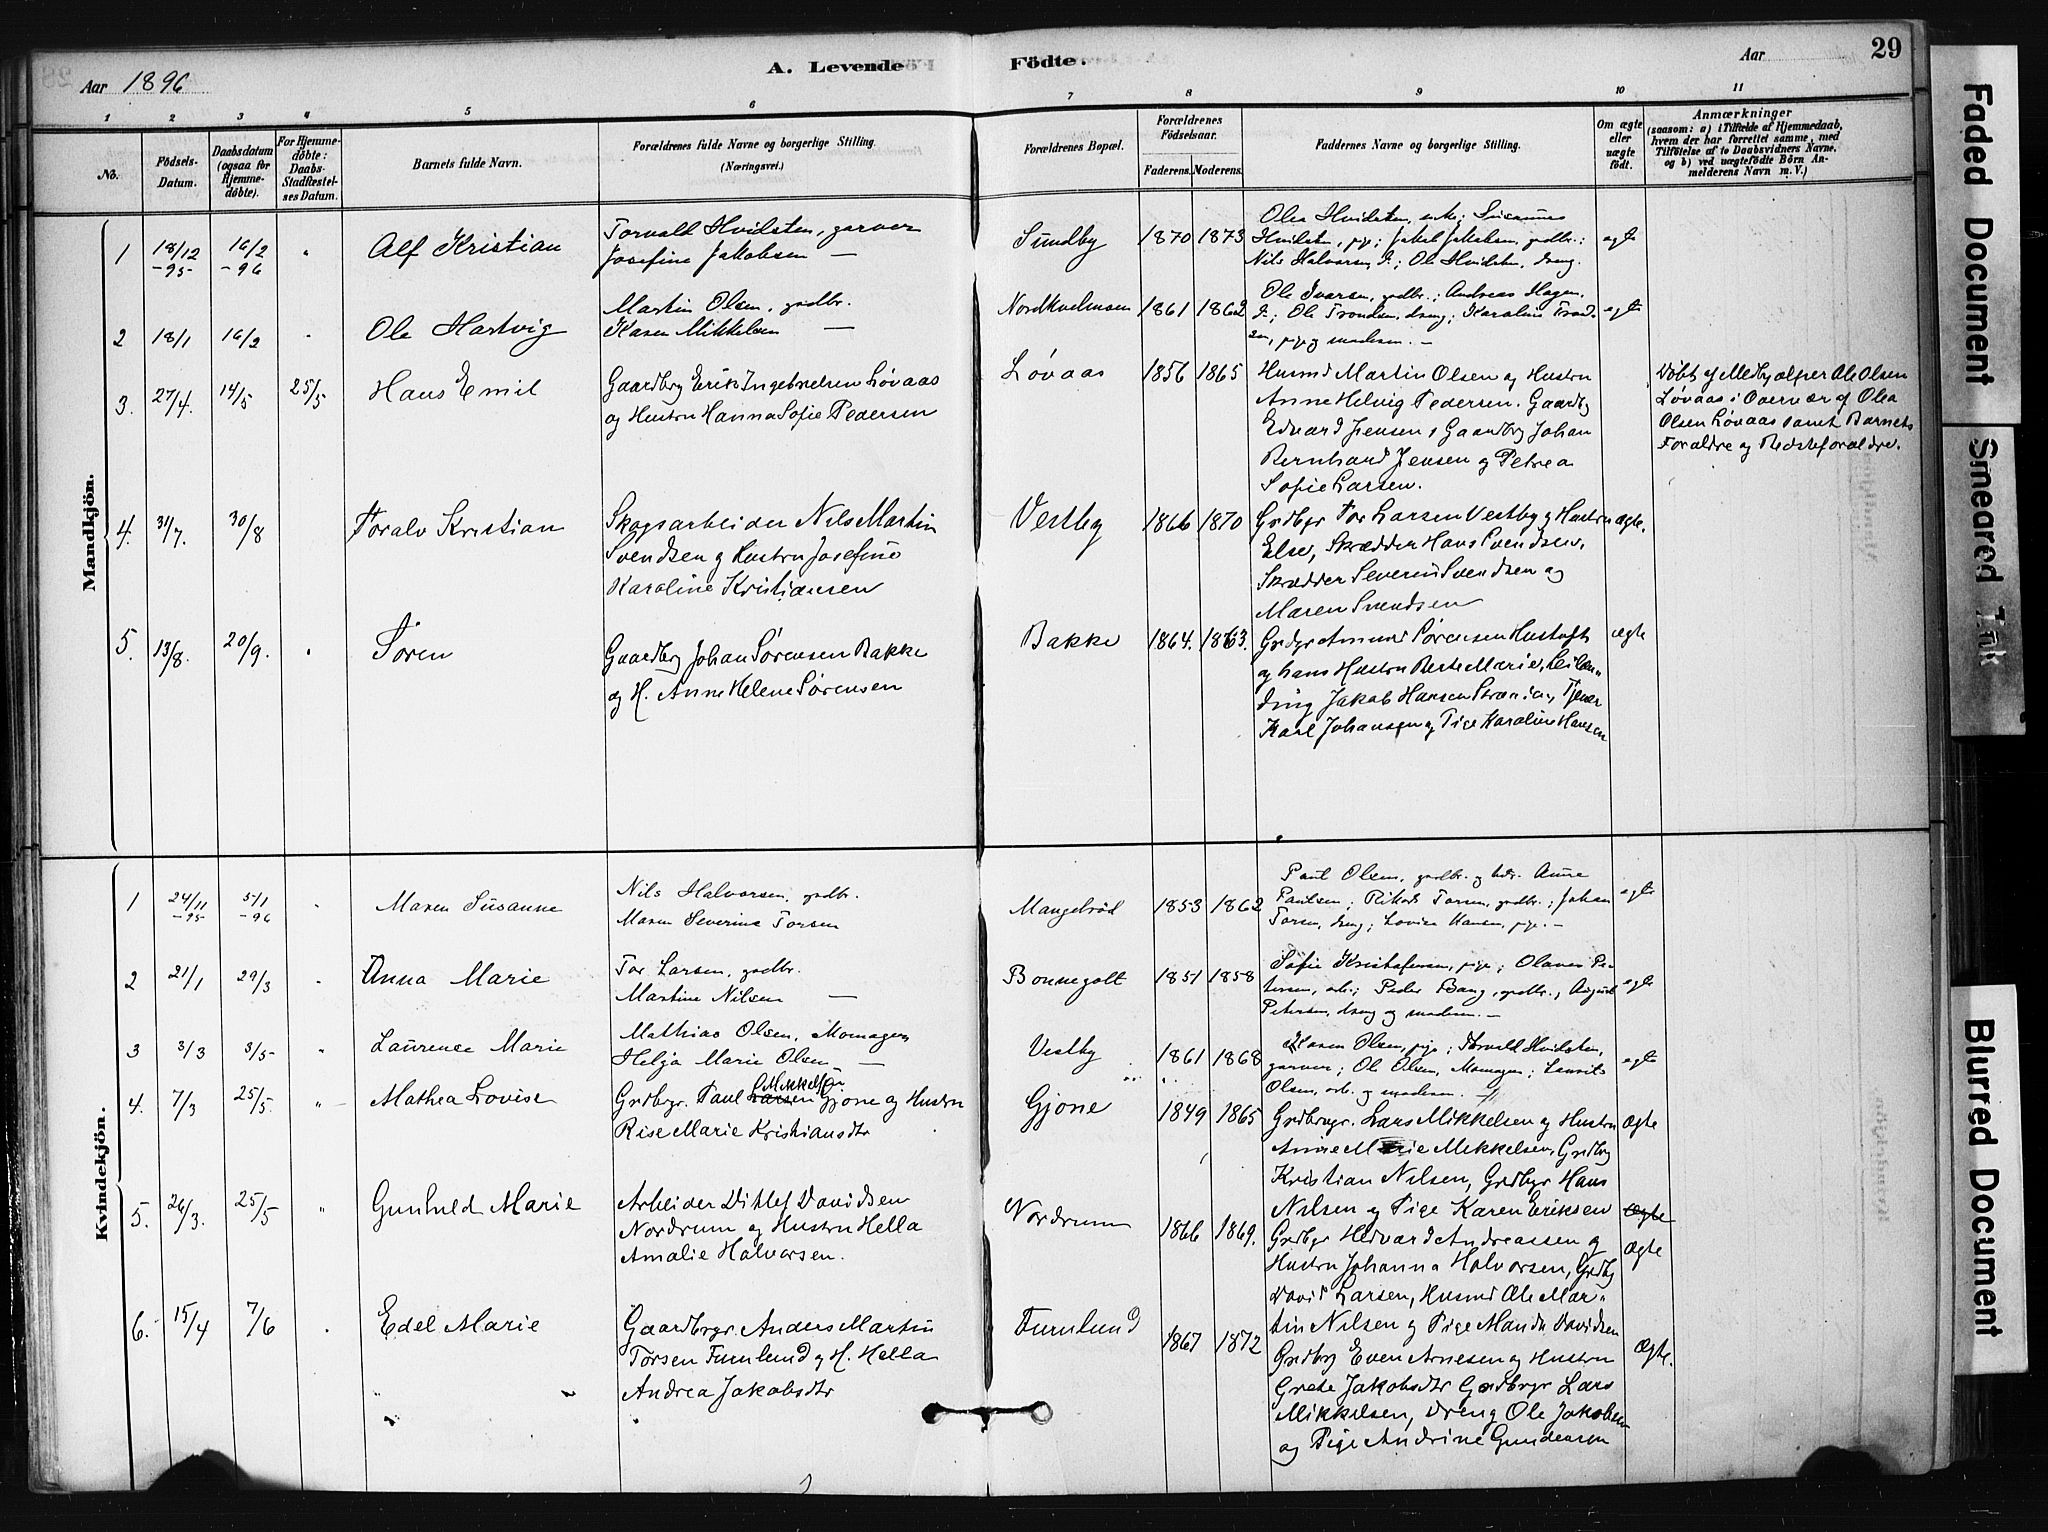 Aar 1896
A. Levende
Födte.
Aar
29
1 2 3 4 5 6 7 8 9 10 11
No.
Födsels-
Datum.
Daabsdatum
(ogsaa for
Hjemme-
döbte).
For Hjemme-
döbte:
Daabs-
Stadfæstel-
ses Datum.
Barnets fulde Navn.
Forældrenes fulde Navne og borgerlige Stilling.
(Næringsvei.)
Forældrenes Bopæl.
Forældrenes
Födselsaar.
Faderens. Moderens.
Faddernes Navne og borgerlige Stilling.
Om ægte
eller
uægte
födt.
Anmærkninger
(saasom: a) i Tilfælde af Hjemmedaab,
hvem der har forrettet samme, med
Tilföielse af to Daabsvidners Navne,
og b) ved uægtefödte Börn An-
melderens Navn m. V.)
Mandkjön.
1 18/12 -95- 16/2 -96 " Alf Kristian
Torvald Hvidsten, garver
Josefine Jakobsen —
Sundby 1870 1873
Olea Hvidsten, enke; Susanne
Hvidsten, pige; Jakob Jakobsen, gadbr.;
Nils Halvorsen, d.; Ole Hvidsten, dreng.
egte
2 18/1 16/2 " Ole Hartvig
Martin Olsen, gadbr.
Karen Mikkelsen —
1861 1862
Ole Ivarsen, gadbr.; Andreas Hagen,
d.; Ole Tronsen, dreng; Karoline Tron-
sen, pige og moderen. —
egte
3. 27/4. 14/5 25/5 Hans Emil
Gaardbrg Erik Ingebretsen Løvaas
og Hustru Hanna Sofie Pedersen
Løvaas 1856 1865
Husmd Martin Olsen og Hustru
Anne Helvig Pedersen. Gaardbg
Edvard Jensen, Gaardbg Johan
Bernhard Jensen og Petrea
Sofie Larsen.
Døbt af Medhjælper Ole Olsen
Løvaas i Overvær af Olea
Olsen Løvaas samt Barnets
Forældre og Bedsteforældre.
4. 31/7. 30/8 Toralv Kristian
Skogsarbeider Nils Martin
Svendsen og Hustru Josefine
Karoline Kristiansen
Vestby 1866 1870
Grdbgr Tor Larsen Vestby og Hustru
Else, Skrædder Hans Svendsen,
Skrædder Severin Svendsen og
Maren Svendsen
ægte.
5. 13/8. 20/9. " Søren
Gaardbrg Johan Sørensen Bakke
og H. Anne Helene Sørensen
Bakke 1864. 1863.
Grdbgr Ammund Sørensen Hustoft
og hans Hustru Berte Marie, Leilæn-
ding Jakob Hansen Strania, Tjener
Karl Johansen og Pige Karoline Hansen
ægte
Kvindekjön.
1 24/11 -95 5/1 -96 " Maren Susanne
Nils Halvorsen, gadbr.
Maren Severine Torsen
Mangelsrød 1853 1862
Paul Olsen, gadbr. og hdr. Anne
Paulsen; Rikard Torsen, gadbr.; Johan
Torsen, dreng; Lovise Hansen, pige. —
egte
2 21/1 29/3 " Anna Marie
Tor Larsen, gadbr.
Martine Nilsen —
Bonnegolt 1851 1858
Sofie Kristofersen, pige; Olaves Pe-
tersen, arb.; Peder Bang, gadbr., August
Petersen, dreng og moderen. —
egte
3 3/3 3/5- " Laurense Marie
Mathias Olsen, Momagen
Helja Marie Olsen —
Vestby 1861 1868
Karen Olsen, pige; Torvald Hvidsten,
garver; Ole Olsen, Momagen; Laurits
Olsen, arb. og moderen. —
egte
4. 7/3 25/5. " Mathea Lovise
Grdbrgr. Paul Larsen Mikkelsen Gjone og Hustru
Rise Marie Kristiansdtr
Gjone 1849 1865
Grdbrugr. Lars Mikkelsen og Hustru
Anne Marie Mikkelsen, Grdbrg
Kristian Nilsen, Grdbgr Hans
Nilsen og Pige Karen Eriksen
Ægte
5. 26/3. 25/5 " Gunhild Marie
Arbeider Ditlef Davidsen
Nordrum og Hustru Hella
Amalie Halvorsen.
Nordrum 1866 1869.
Grdbgr Hedvard Andreassen og
Hustru Johanna Halvorsen, Grdbg
David Larsen, Husmd Ole Mar-
tin Nilsen og Pige Manda Davidsen
Ægte
Ægte
6. 15/4 7/6 " Edel Marie
Gaardbrgr. Anders Martin
Torsen Furulund og H. Hella
Andrea Jakobsdtr
Furulund 1867 1872
Grdbrg Even Arnesen og Hustru
Grete Jakobsdtr Grdbrgr Lars
Mikkelsen, Dreng Ole Jakobsen
og Pige Andrine Gundersen
Ægte.
Faded Document
Smeared Ink
Blurred Document